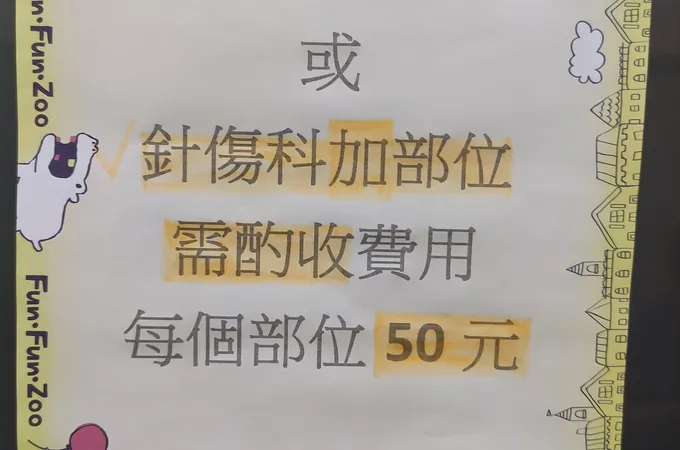 或
針傷科加部位
需酌收費用
每個部位 50 元
Fun·Zoo
Fun·Fun·Zoo